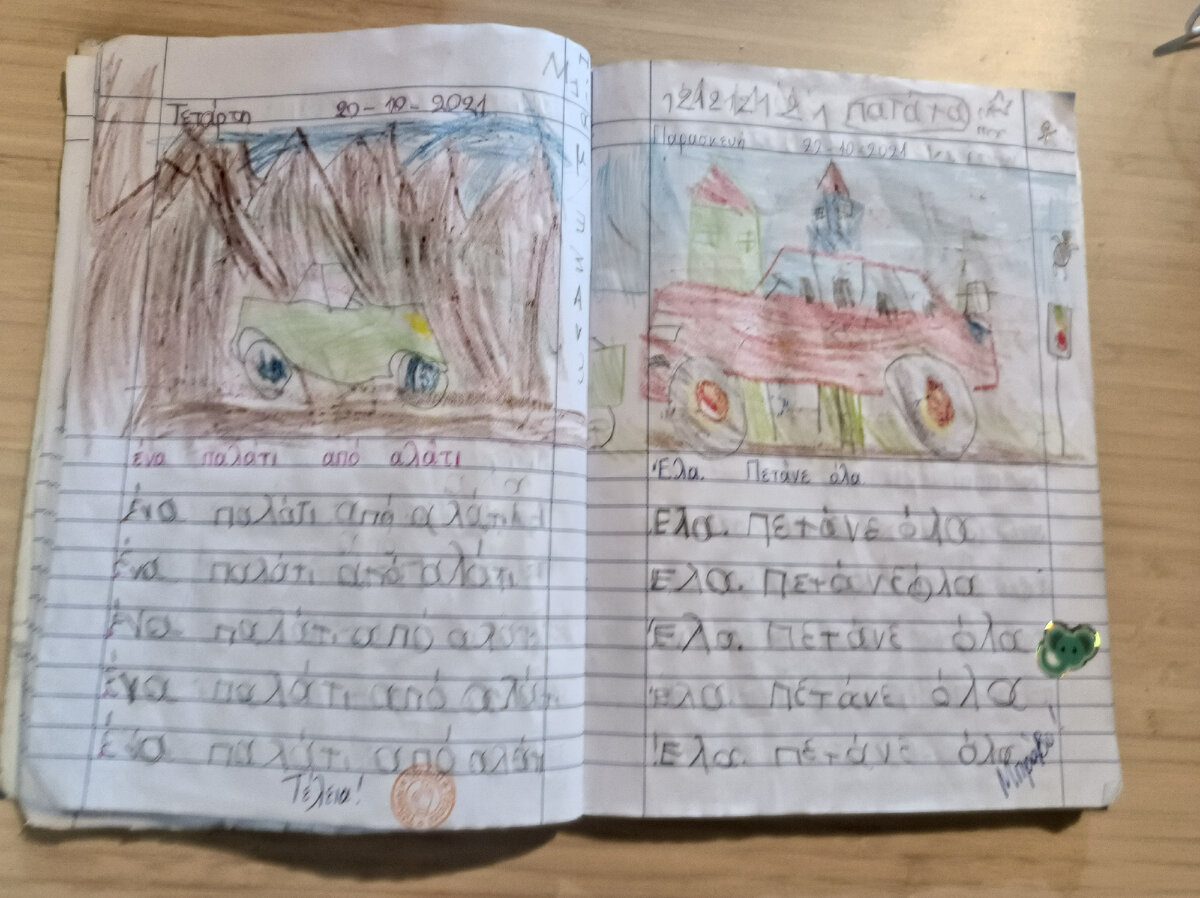 Τετάρτη 20-10-2021
ένα παλάτι από αλάτι
ένα παλάτι από αλάτι
ένα παλάτι από αλάτι
ένα παλάτι από αλάτι
ένα παλάτι από αλάτι
ένα παλάτι από αλάτι
Τέλεια!
12121212 1 πατάτα
Παρασκευή 22-10-2021
Έλα. Πετάνε όλα
Έλα. Πετάνε όλα
Έλα. Πετάνε όλα
Έλα. Πετάνε όλα
Έλα. Πετάνε όλα
Έλα. Πετάνε όλα
Μπράβο!